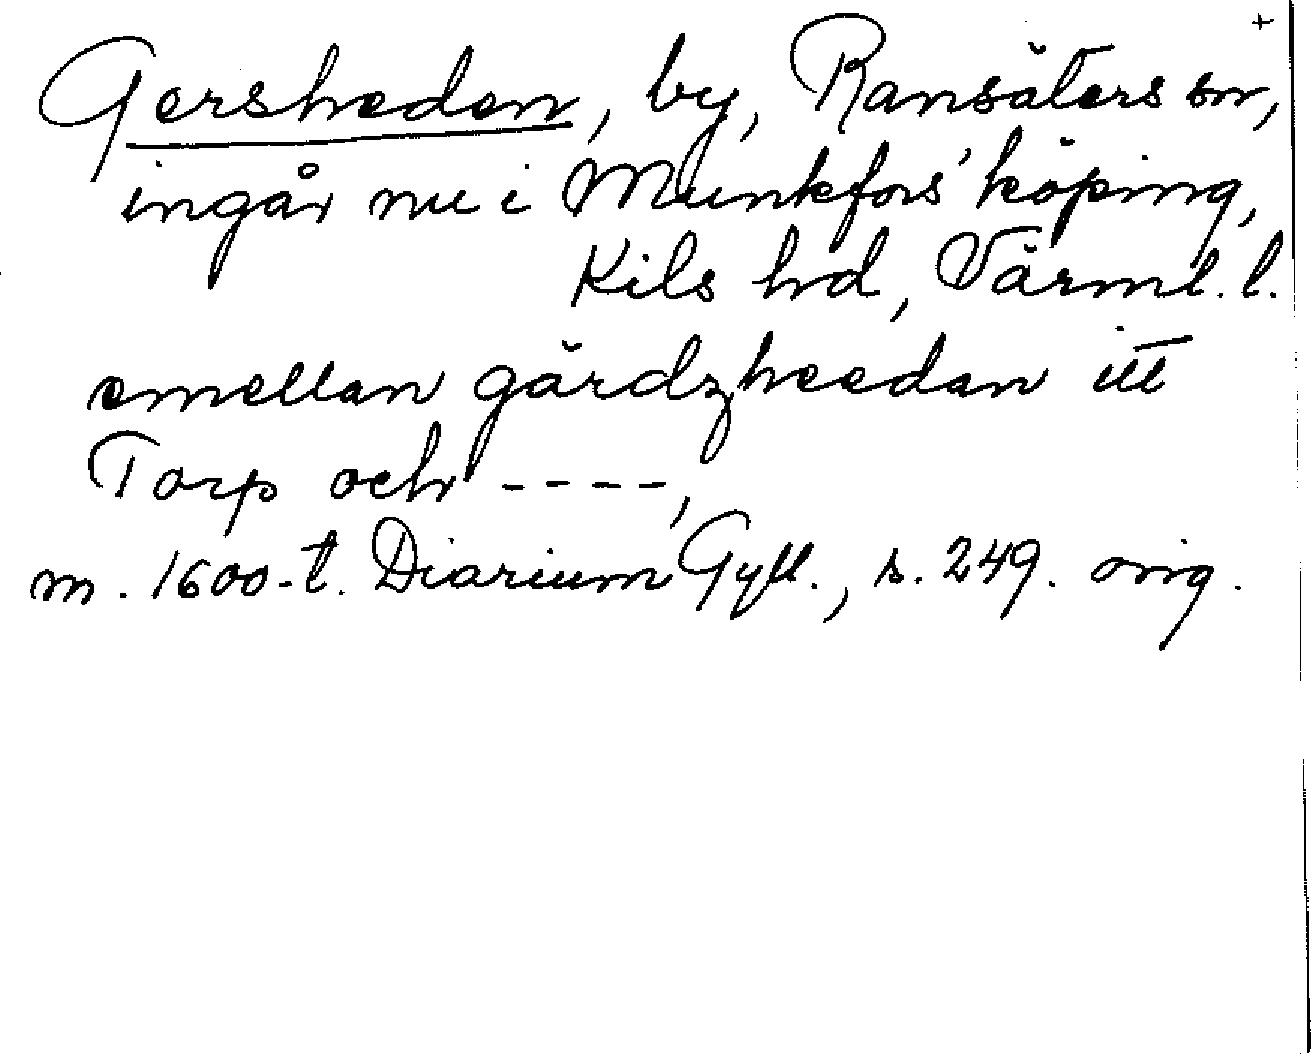 +
Gersheden, by, Ransäters sn,
ingår nu i Munkfors' köping,
Kils hd, Värml. l.
emellan gärdzheedan itt
Torp och ----,
m. 1600-t. Diarium Gyll., s. 249. orig.